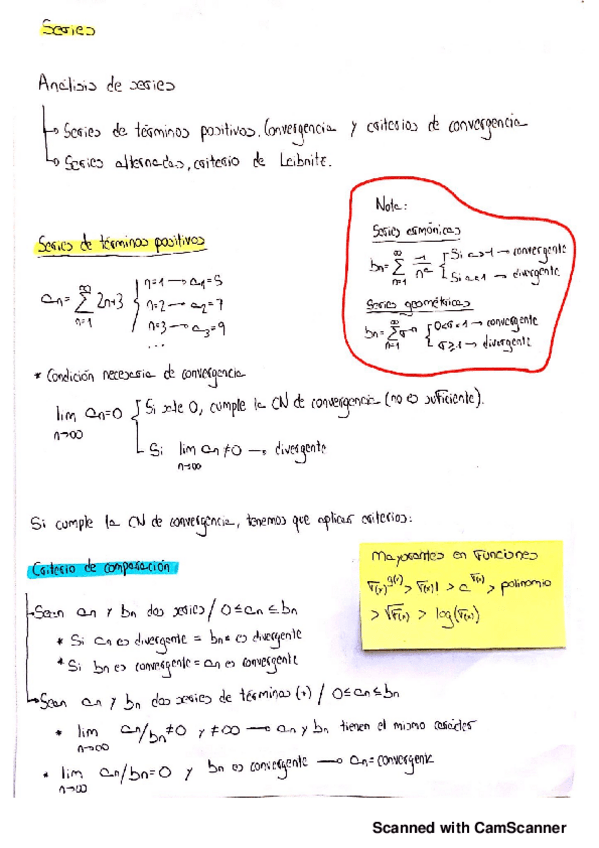 Series
Análisis de series
Series de términos positivos. Convergencia y criterios de convergencia
Series alternadas, criterio de Leibnitz.
Nota:
Series armónicas
bn = ∞ Σ n=1 1/n^a { Si a>1 → convergente
Si a≤1 → divergente
Series geométricas
bn = ∞ Σ n=1 r^n { 0<r<1 → convergente
r≥1 → divergente
Series de términos positivos
an = ∞ Σ n=1 2n+3 { n=1 → a1=5
n=2 → a2=7
n=3 → a3=9
...
* Condición necesaria de convergencia
lim n→∞ an=0 { Si sale 0, cumple la CN de convergencia (no es suficiente).
Si lim n→∞ an≠0 → divergente
Si cumple la CN de convergencia, tenemos que aplicar criterios:
Criterio de comparación
Mayorantes en funciones
f(x)^g(x) > f(x)! > a^f(x) > polinomio
> √f(x) > log(f(x))
Sean an y bn dos series / 0≤an≤bn
* Si an es divergente = bn es divergente
* Si bn es convergente = an es convergente
Sean an y bn dos series de términos (+) / 0≤an≤bn
* lim n→∞ an/bn≠0 y ≠∞ → an y bn tienen el mismo carácter
* lim n→∞ an/bn=0 y bn es convergente → an=convergente
Scanned with CamScanner